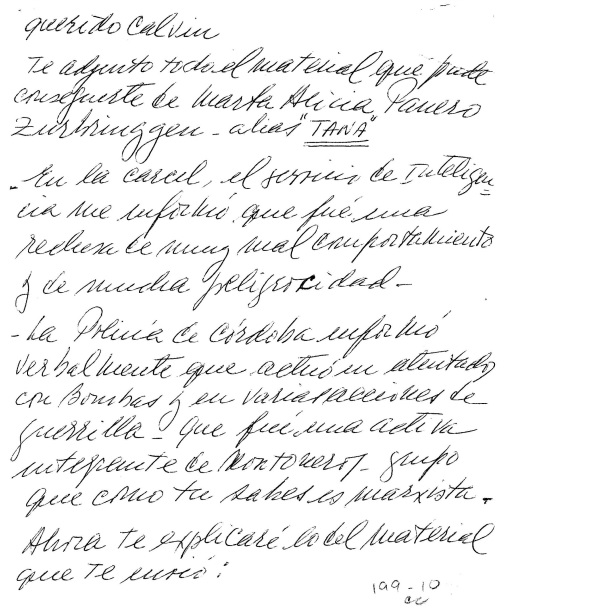 querido Calvin
Te adjunto todo el material que pude
conseguirte de Marta Alicia Panero
Zurbringgen - alias "TANA"
- En la carcel, el servicio de Inteligen
cia me informó que fué una
reclusa de muy mal comportamiento
y de mucha peligrocidad -
- La Policía de Córdoba informó
verbalmente que actuó en atentados
con Bombas y en varias acciones de
guerrilla - que fué una activa
integrante de Montoneros - grupo
que como tu sabes es marxista.
Ahora te explicaré lo del material
que te envio:
199-10